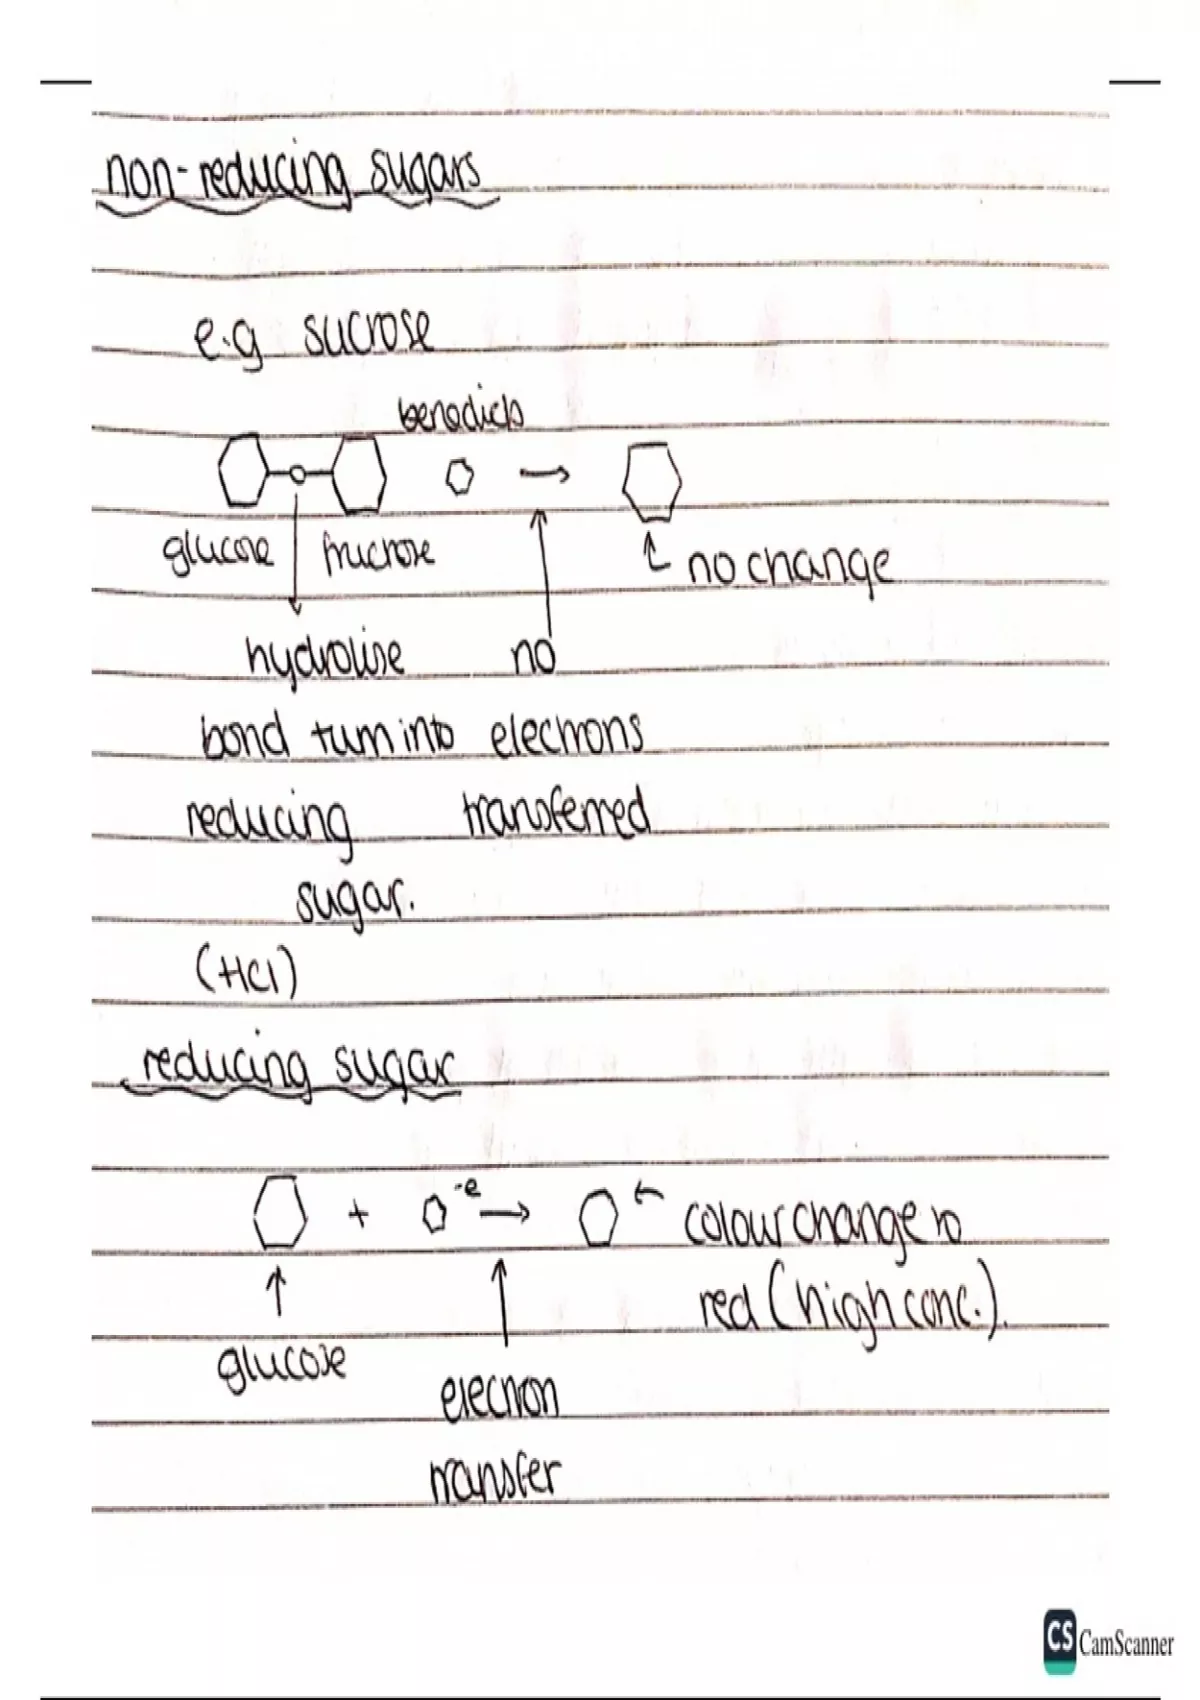 non-reducing sugars
e.g sucrose
benedicts
glucose fructose
no change
hydrolise no
bond turn into electrons
reducing transferred
sugar.
(HCl)
reducing sugar
+ -e
colour change to
red (high conc.).
glucose
electron
transfer
CS CamScanner